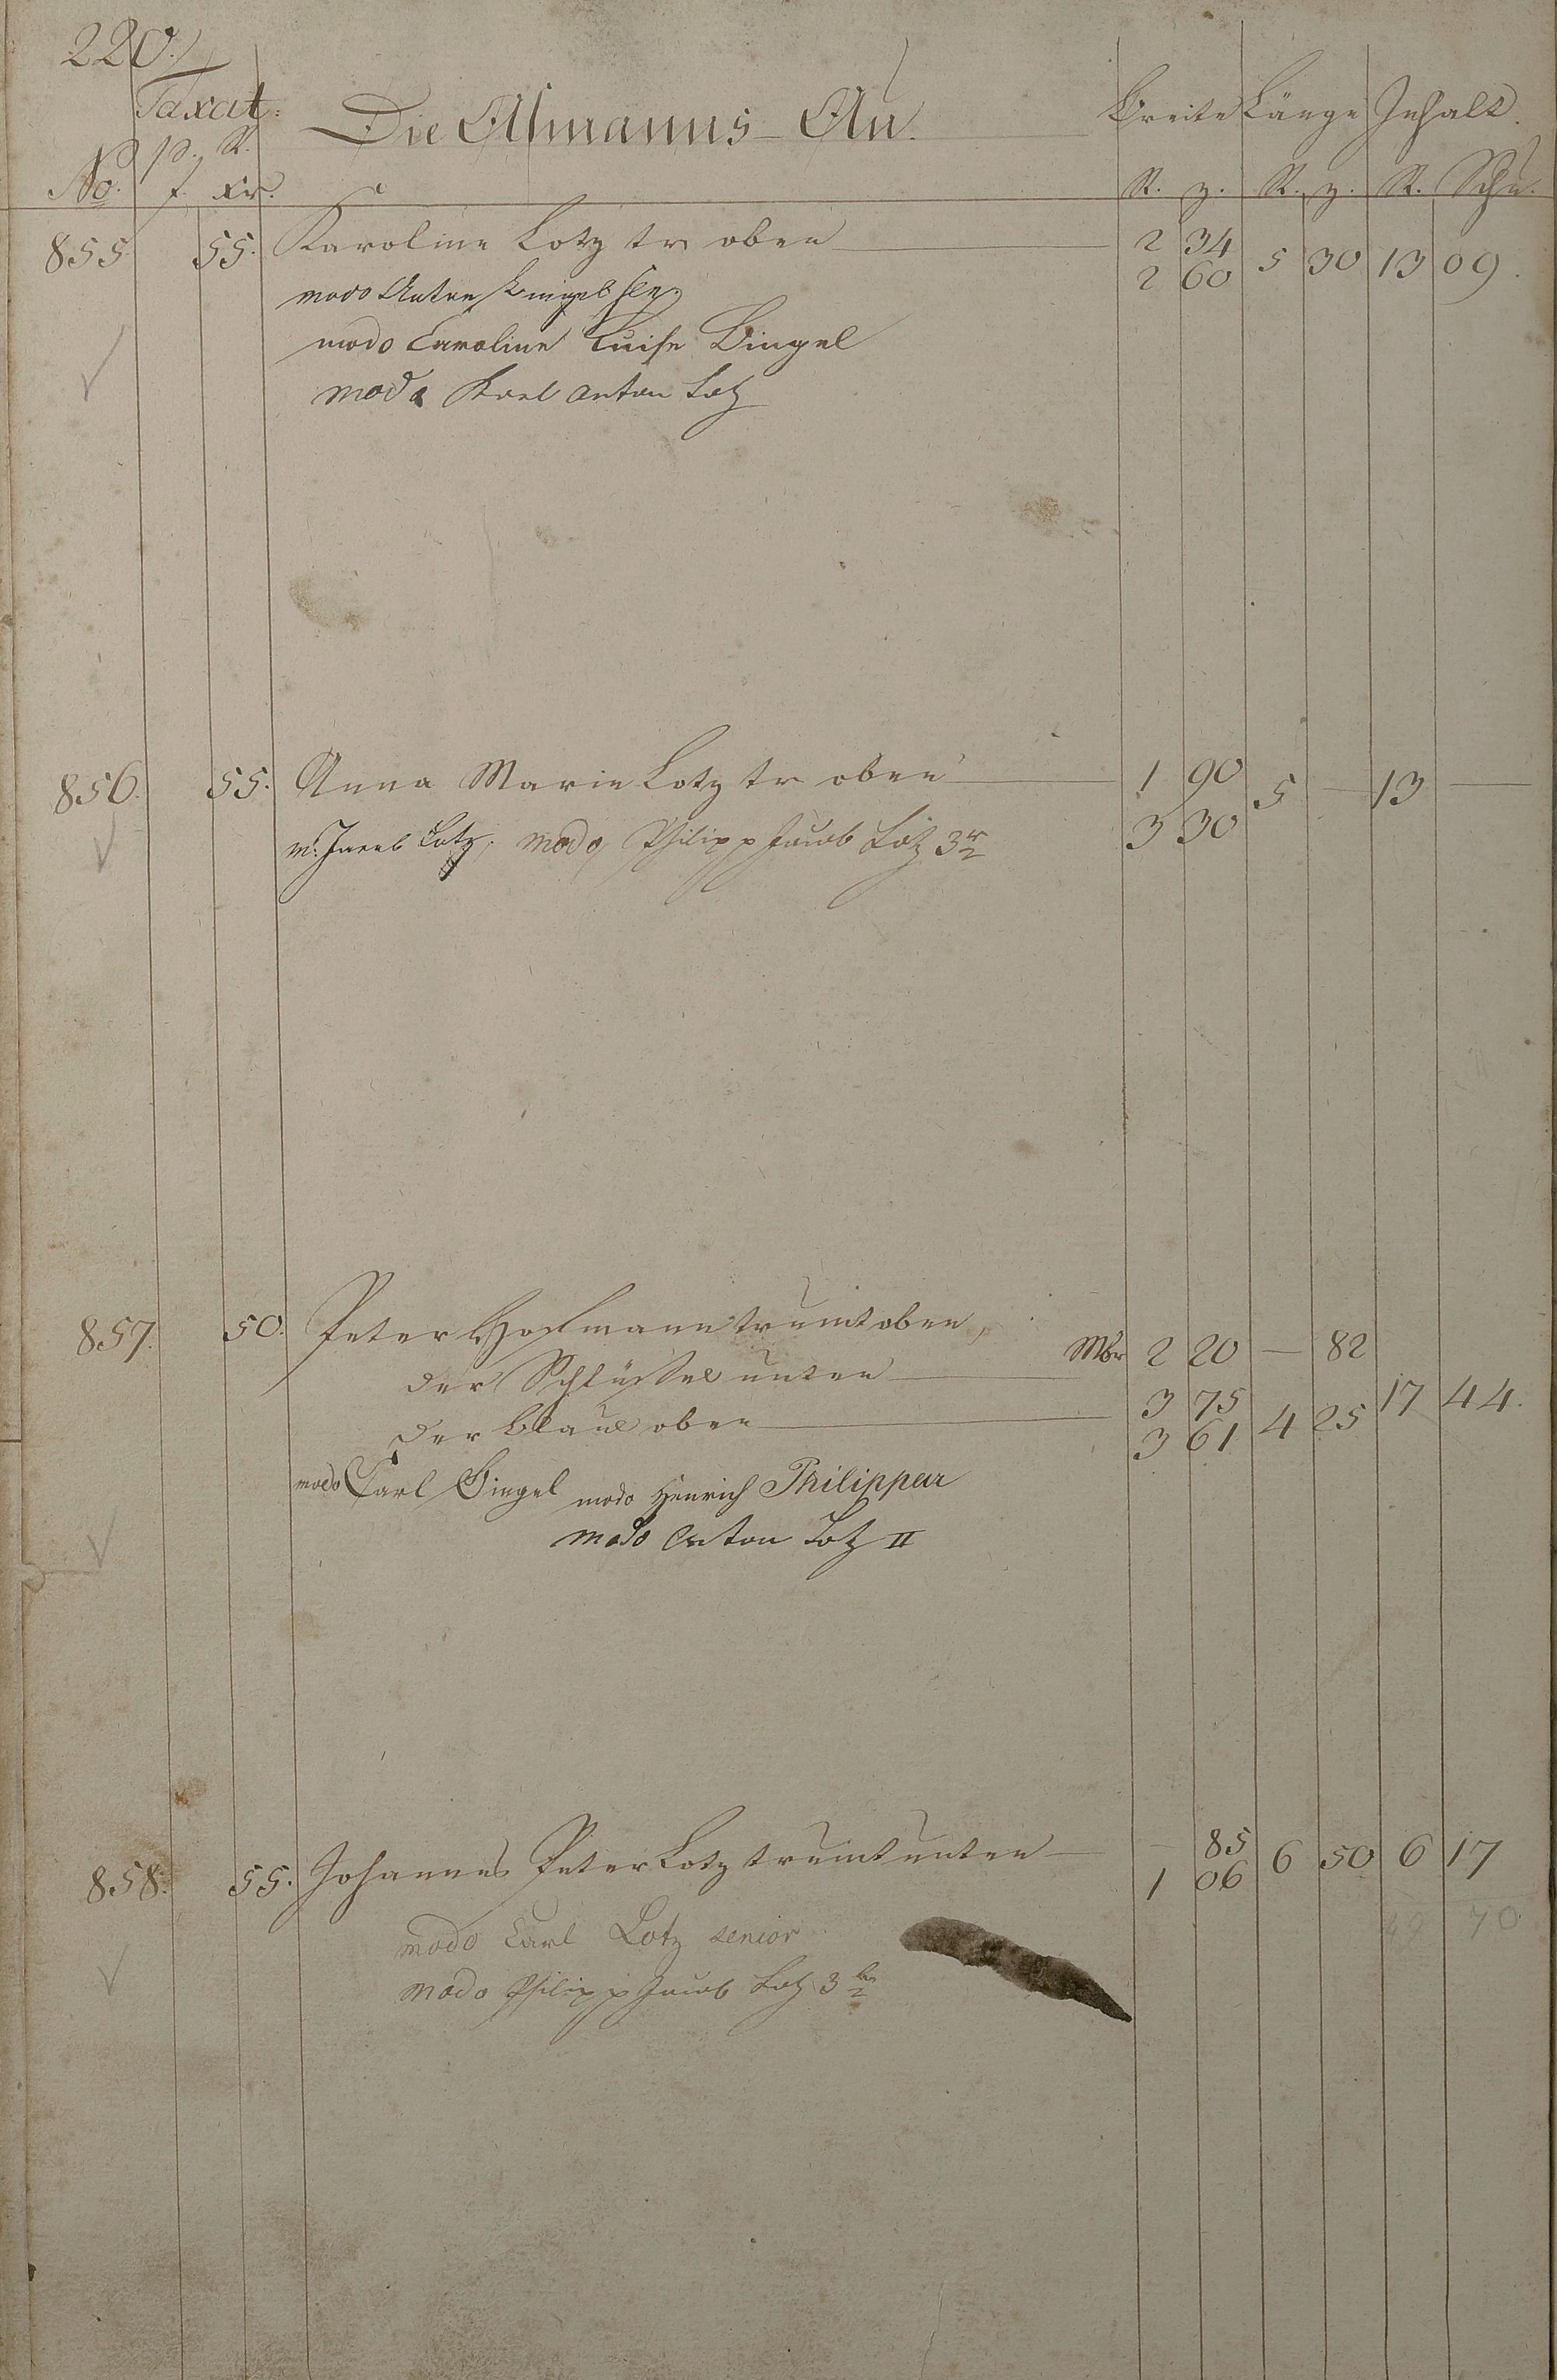 220.
Taxat:
p. R.
No. f. xr.
Die Almanns-Au.
Breite Länge Inhalt.
R. z. R. z. R. Schu.
855. 55. Karoline Lotz tr oben 2 34 5 30 13 09.
2 60
modo Anton Bingel sen.
modo Caroline Luise Bingel
modo Karl Anton Lotz
856. 55. Anna Marie Lotz tr oben 1 90 5 — 13 —
3 30
m. Jacob Lotz, modo Philipp Jacob Lotz 3r
857. 50. Peter Hofmann trumt oben,
Mbr 2 20 — 82
der Schlüssel unten
3 75 4 25 17 44.
der Blaul oben 3 61
modo Carl Bingel modo Henrich Philippar
modo Anton Lotz II
858. 55. Johannes Peter Lotz trumt unten — 85 6 50 6 17
1 06
modo Carl Lotz senior
49 70
modo Philipp Jacob Lotz 3